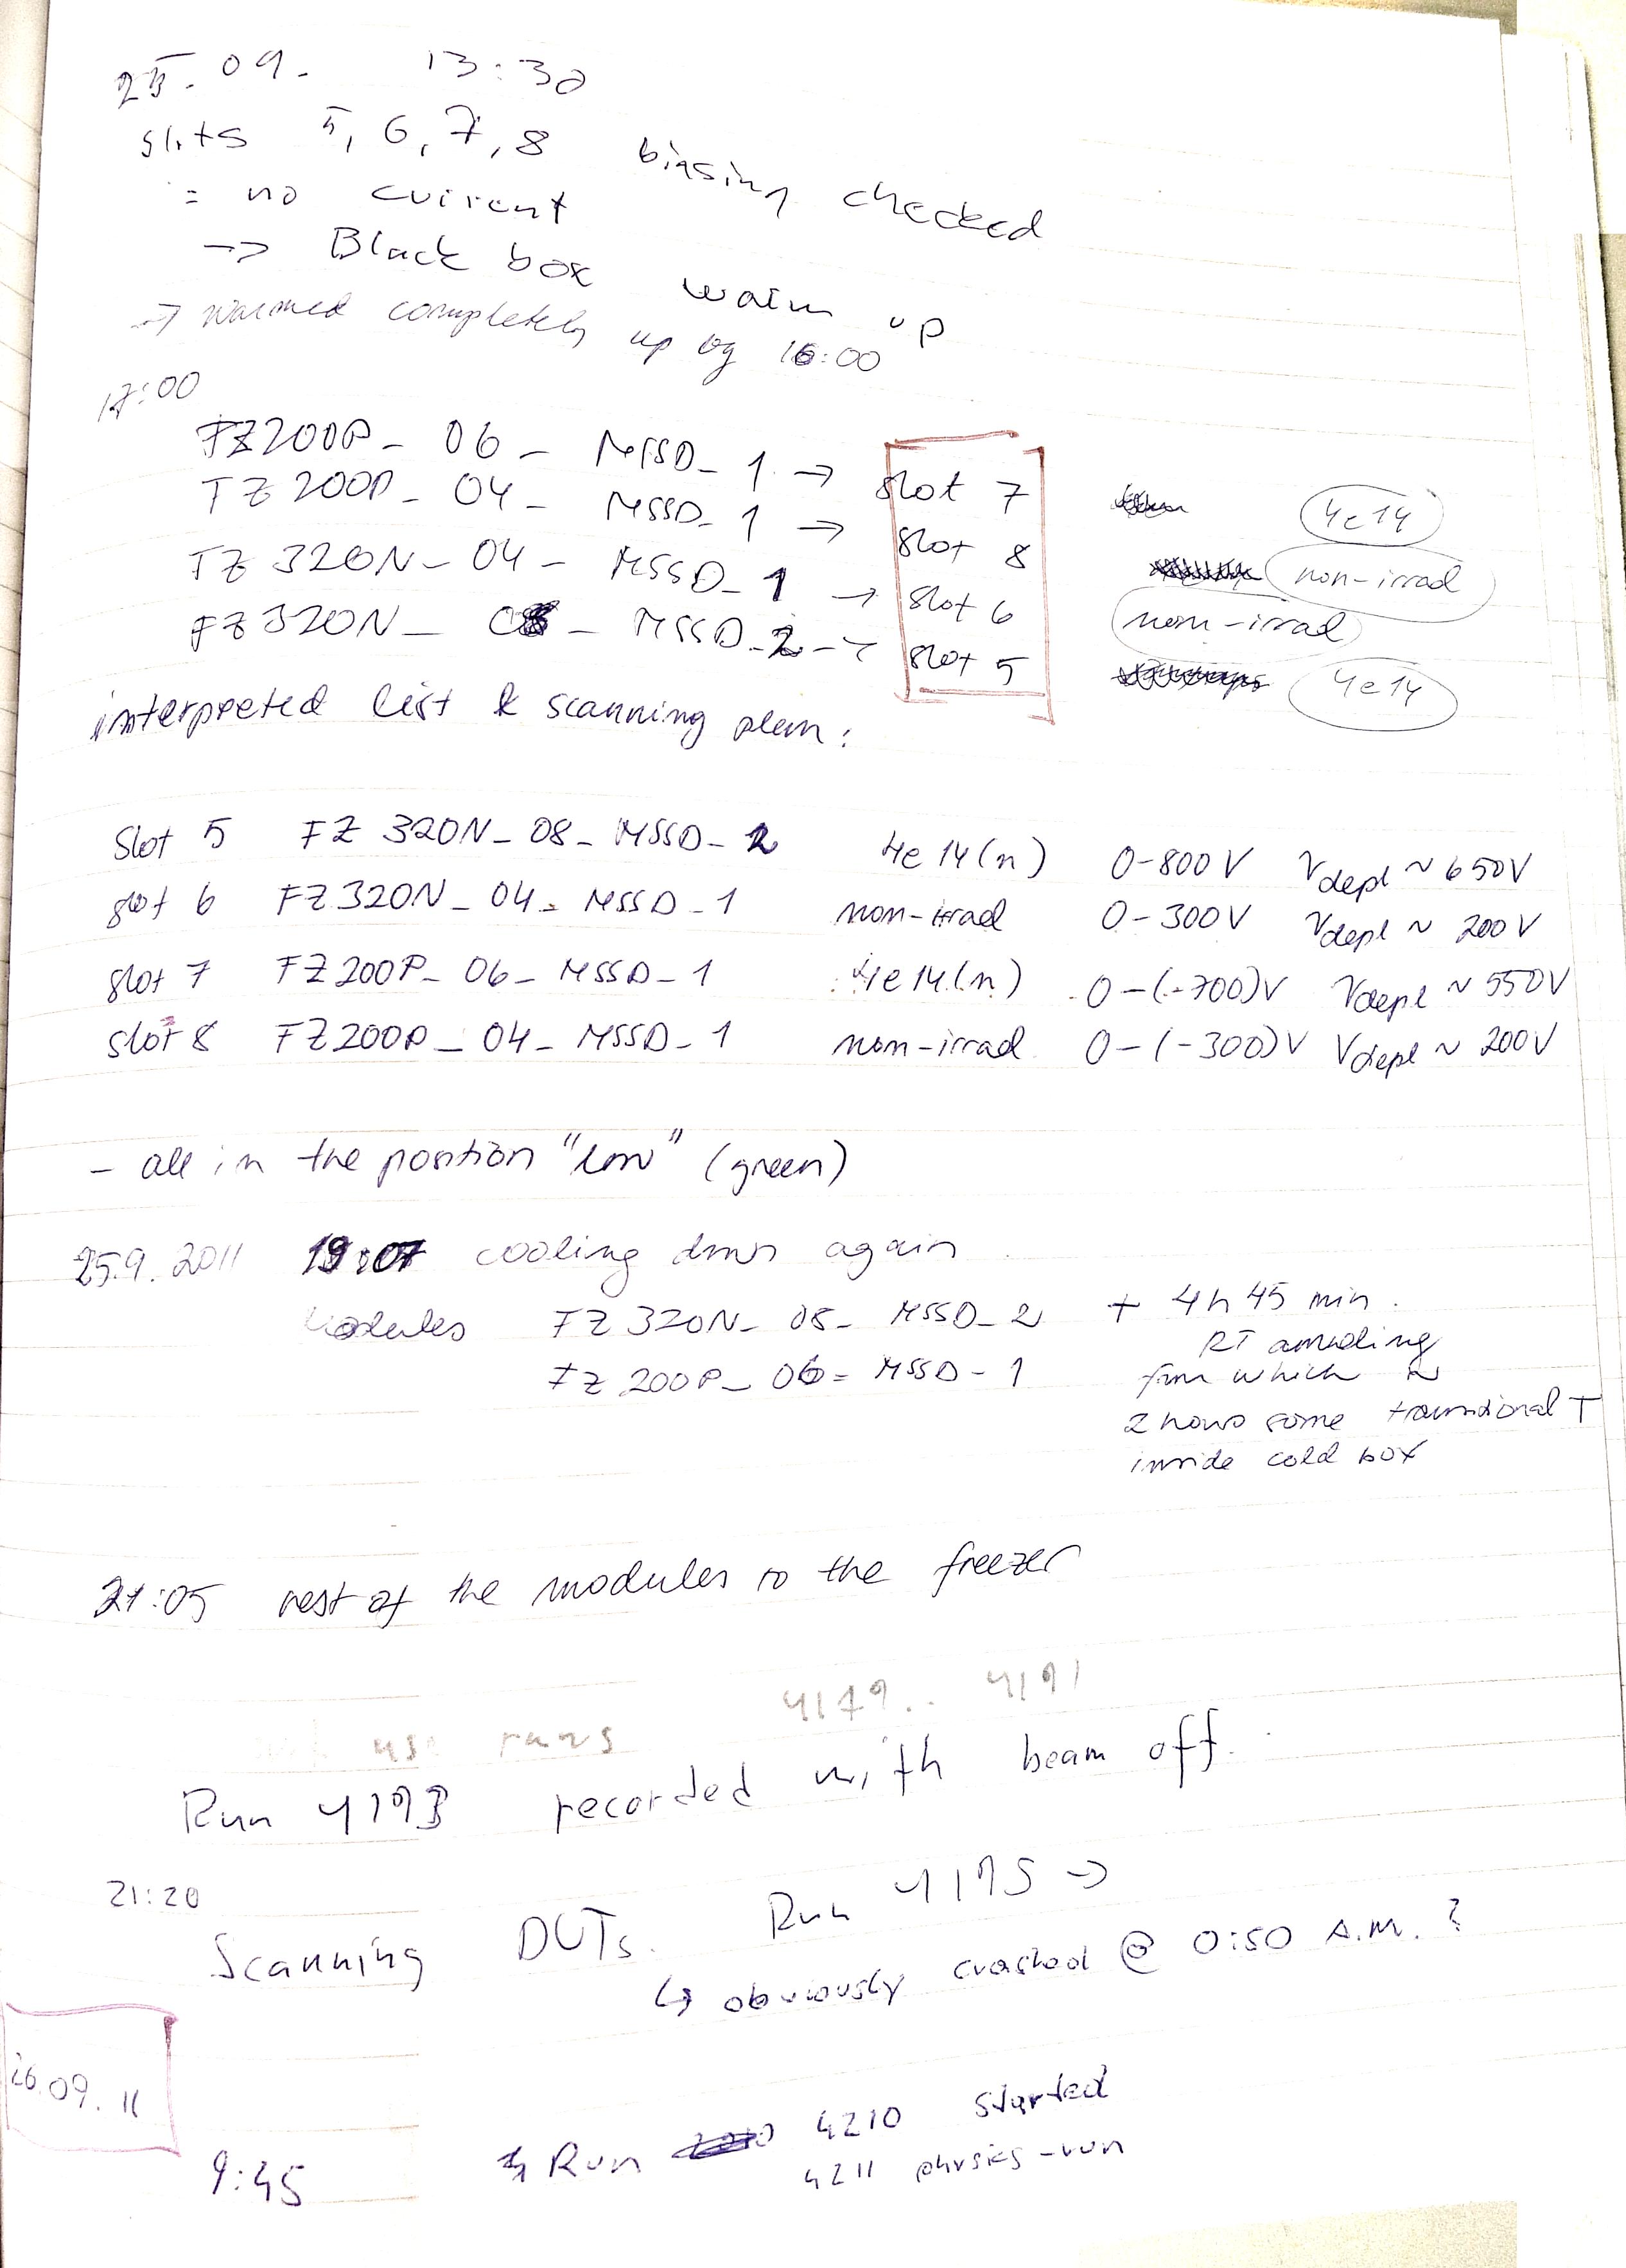 25.09. 13:30
slots 5, 6, 7, 8 biasing checked
= no current
→ Black box warm up
→ warmed completely up by 16:00
17:00
FZ200P_06_MSSD_1 → slot 7 4e14
FZ200P_04_MSSD_1 → slot 8 non-irrad
FZ320N_04_MSSD_1 → slot 6 non-irrad
FZ320N_08_MSSD_2 → slot 5 4e14
interpreted list & scanning plan:
Slot 5 FZ 320N_08_MSSD_2 4e14(n) 0-800V Vdepl ~ 650V
slot 6 FZ320N_04_MSSD_1 non-irrad 0-300V Vdepl ~ 200V
slot 7 FZ200P_06_MSSD_1 4e14(n) 0-(-700)V Vdepl ~ 550V
slot 8 FZ200P_04_MSSD_1 non-irrad 0-(-300)V Vdepl ~ 200V
- all in the position "low" (green)
25.9.2011 19:07 cooling down again
Modules FZ320N_08_MSSD_2 + 4h 45 min.
FZ200P_06_MSSD_1 RT annealing
from which ~
2 hours some transitional T
inside cold box
21:05 rest of the modules to the freezer
runs 4179.. 4191
Run 4193 recorded with beam off.
21:20
Scanning DUTs. Run 4195 →
↳ obviously crashed @ 0:50 A.M. ?
26.09.11
9:45 Run 4210 started
4211 physics-run